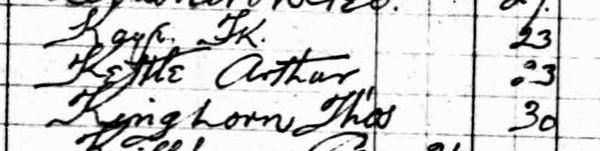 Kaye. Fk. 23
Kettle Arthur 23
Kinghorn Thos 30